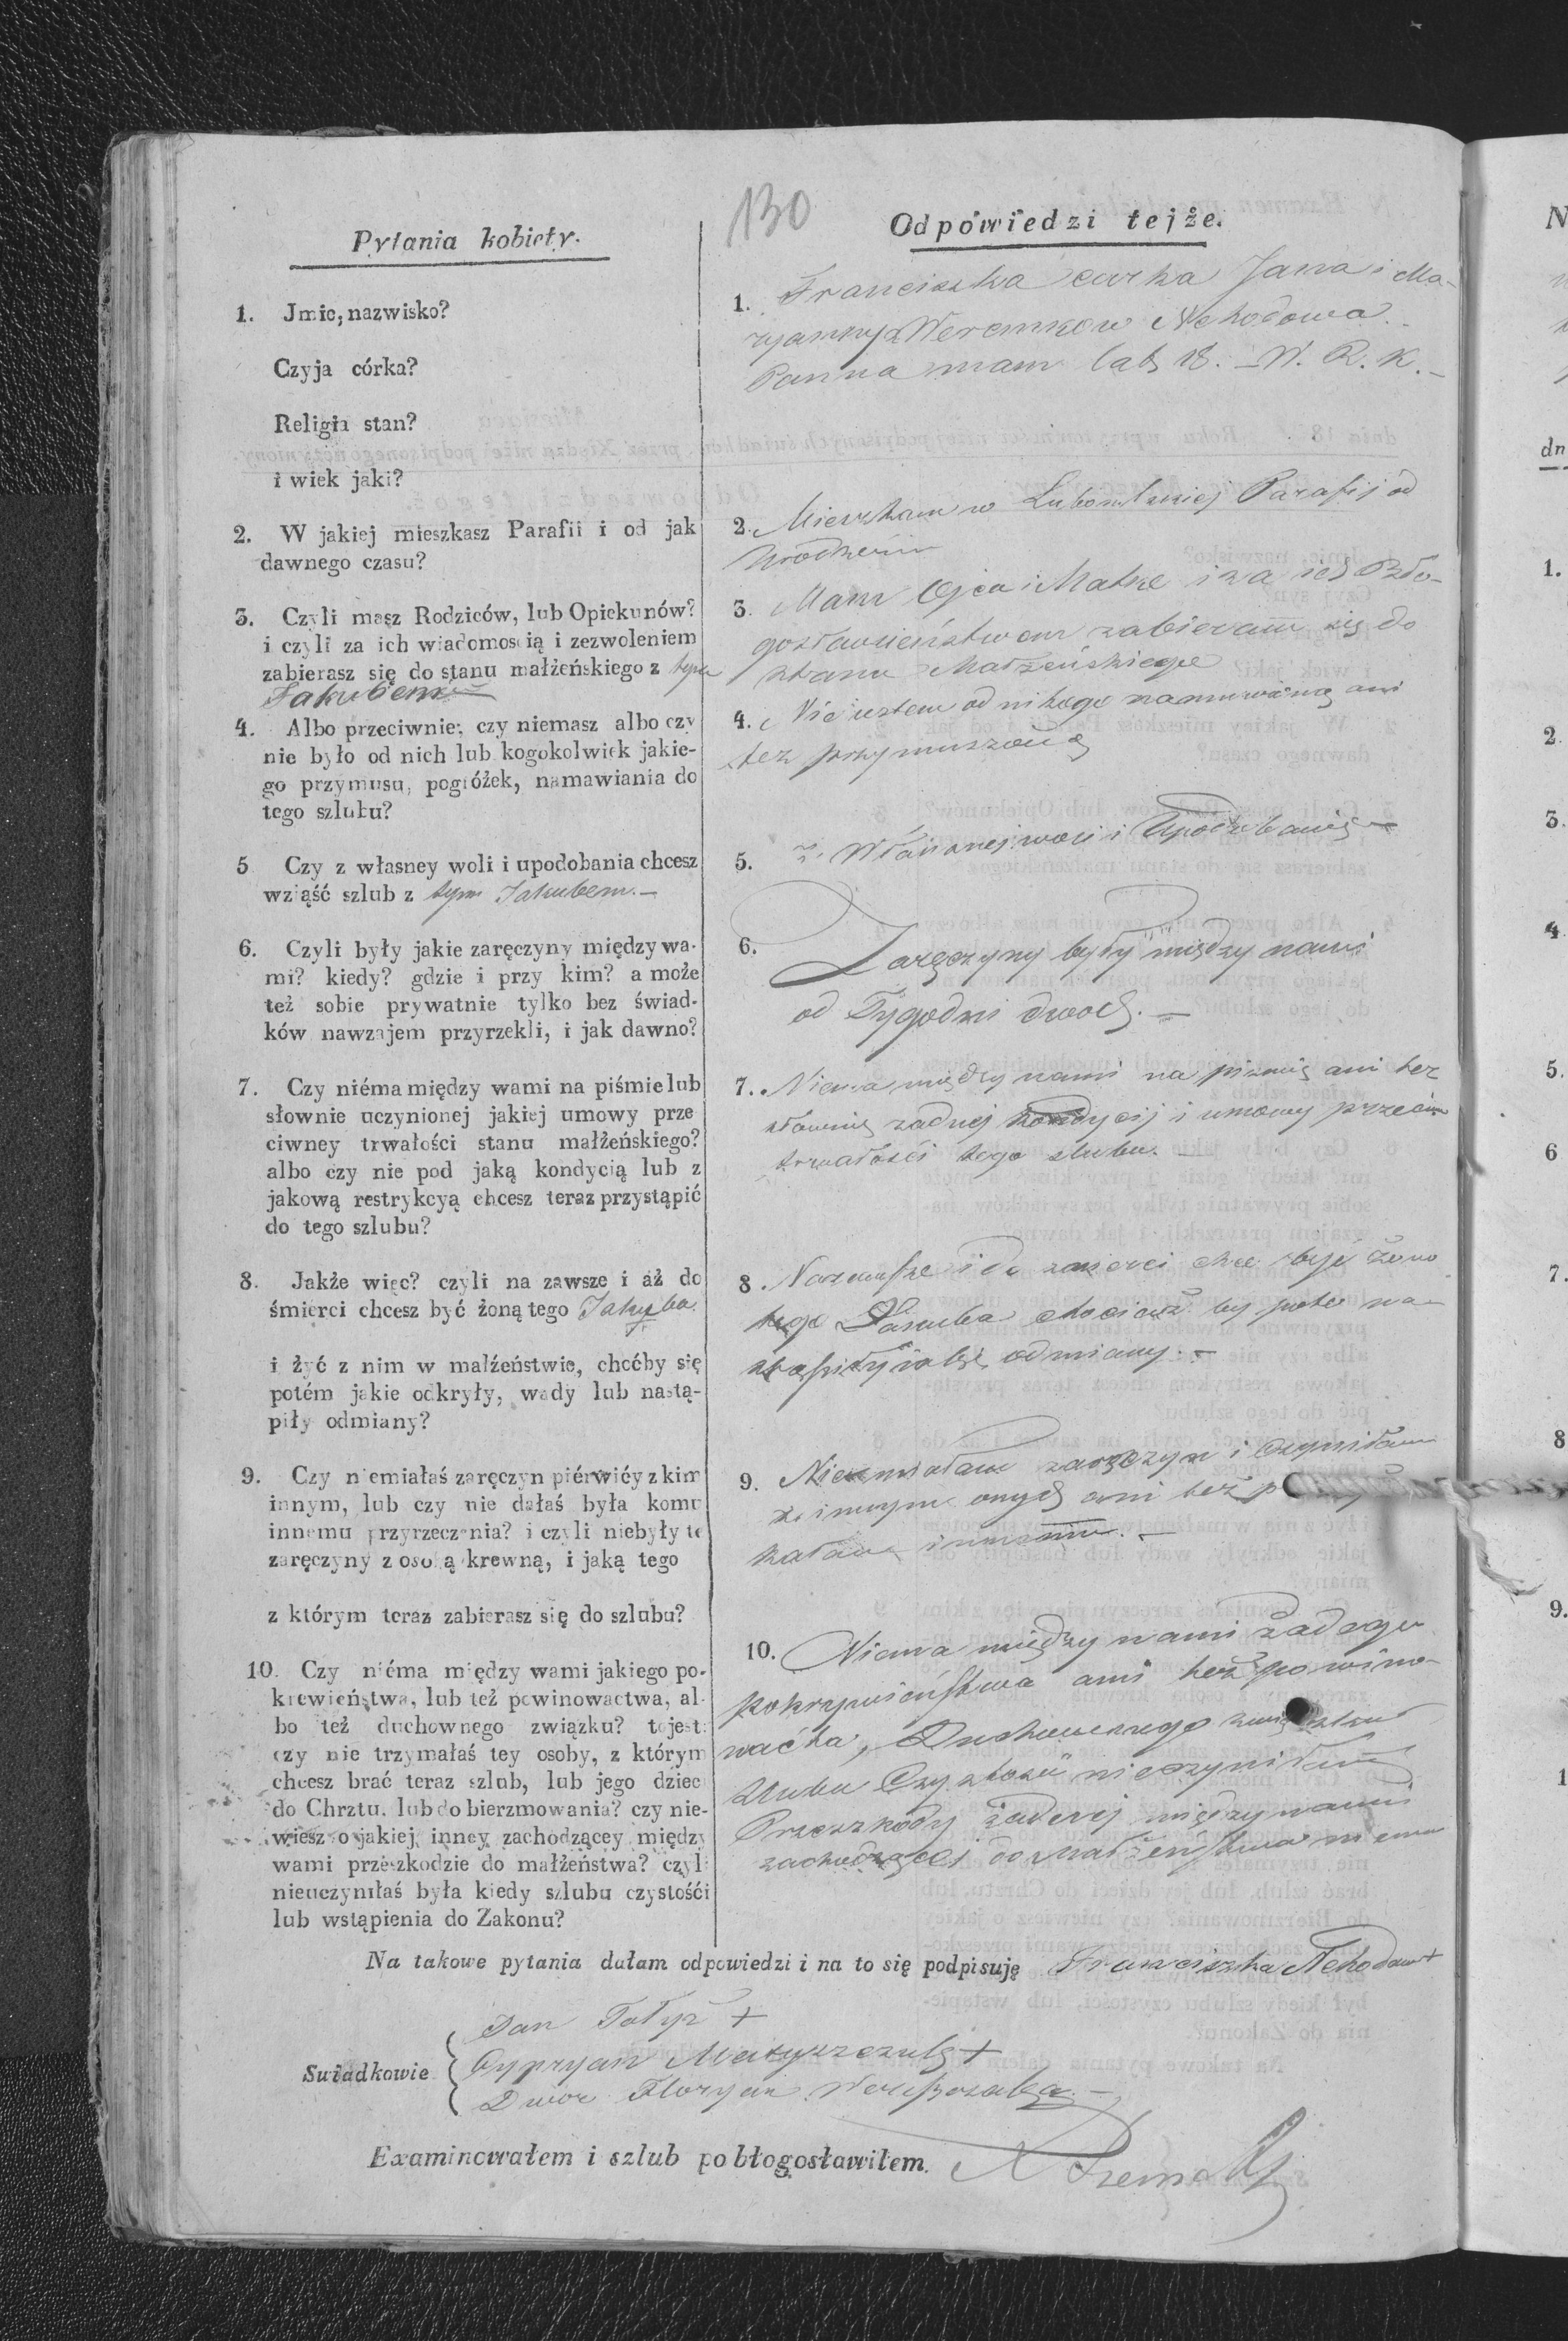 130
Pytania kobiety.
1. Jmie, nazwisko?
Czyja córka?
Religia stan?
i wiek jaki?
2. W jakiej mieszkasz Parafii i od jak
dawnego czasu?
3. Czyli masz Rodziców, lub Opiekunów?
i czyli za ich wiadomoscią i zezwoleniem
zabierasz się do stanu małżeńskiego z tym
Jakubem
4. Albo przeciwnie; czy niemasz albo czy
nie było od nich lub kogokolwiek jakie-
go przymusu, pogróżek, namawiania do
tego szlubu?
5 Czy z własney woli i upodobania chcesz
wziąść szlub z tym Jakubem.—
6. Czyli były jakie zaręczyny między wa-
mi? kiedy? gdzie i przy kim? a może
też sobie prywatnie tylko bez świad-
ków nawzajem przyrzekli, i jak dawno?
7. Czy niéma między wami na piśmie lub
słownie uczynionej jakiej umowy prze
ciwney trwałości stanu małżeńskiego?
albo czy nie pod jaką kondycią lub z
jakową restrykcyą chcesz teraz przystąpić
do tego szlubu?
8. Jakże więc? czyli na zawsze i aż do
śmierci chcesz być żoną tego Jakuba
i żyć z nim w małżeństwie, choćby się
potém jakie odkryły, wady lub nastą-
piły odmiany?
9. Czy niemiałaś zaręczyn piérwiéy z kim
innym, lub czy nie dałaś była komu
innemu przyrzeczenia? i czyli niebyły te
zaręczyny z osobą krewną, i jaką tego
z którym teraz zabierasz się do szlubu?
10. Czy niéma między wami jakiego po-
krewieństwa, lub też powinowactwa, al-
bo też duchownego związku? to jest:
czy nie trzymałaś tey osoby, z którym
chcesz brać teraz szlub, lub jego dzieci
do Chrztu, lub do bierzmowania? czy nie-
wiesz o jakiej inney zachodzącey między
wami przeszkodzie do małżeństwa? czyli
nieuczyniłaś była kiedy szlubu czystośći
lub wstąpienia do Zakonu?
Odpowiedzi tejże.
1. Franciszka curka Jana i Ma-
ryanny Weremkow Nehodowa
Panna mam lat 18. — W. R. K. —
2. Mieszkam w Lubomlskiej Parafij od
Urodzenia
3. Mam Ojca i Matke i za ich Bło-
gosławieństwem zabieram się do
stanu Małżeńskiego
4. Nie iestem od nikogo namuwioną ani
tez przymuszoną
5. Z Własnej woli i Upodobania —
6. Zaręczyny były między nami
od Tygodni dwoch. —
7. Niema między nami na pismie ani tez
słownie zadnej kondycij i umowy przeciw
trwałości tego slubu. —
8. Nazawsze i do smierci chce byc żono
tego Jakuba chociasz by potem na-
odmiany. —
9. Niemiałam zaręczyn i Czyniłam
z innym onych ani też
innemu. —
10. Niema między nami Żadnego
pokrewieństwa ani też powino-
Duchownego
Slubu Czystosci nieczyniłam
Przeszkody żadnej między nami
zachodzącej do Małżeństwa niema
Na takowe pytania dałam odpowiedzi i na to się podpisuję Franciszka Nehodowa +
Swiadkowie
Jan +
Cypryan +
Floryan
Examinowałem i szlub pobłogosławiłem.
N
dn
1.
2.
3.
4.
5.
6
7.
8
9.
1